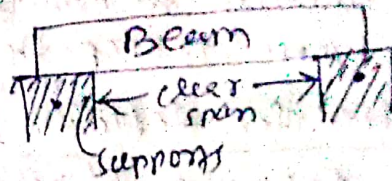 Beam
clear
span
supports